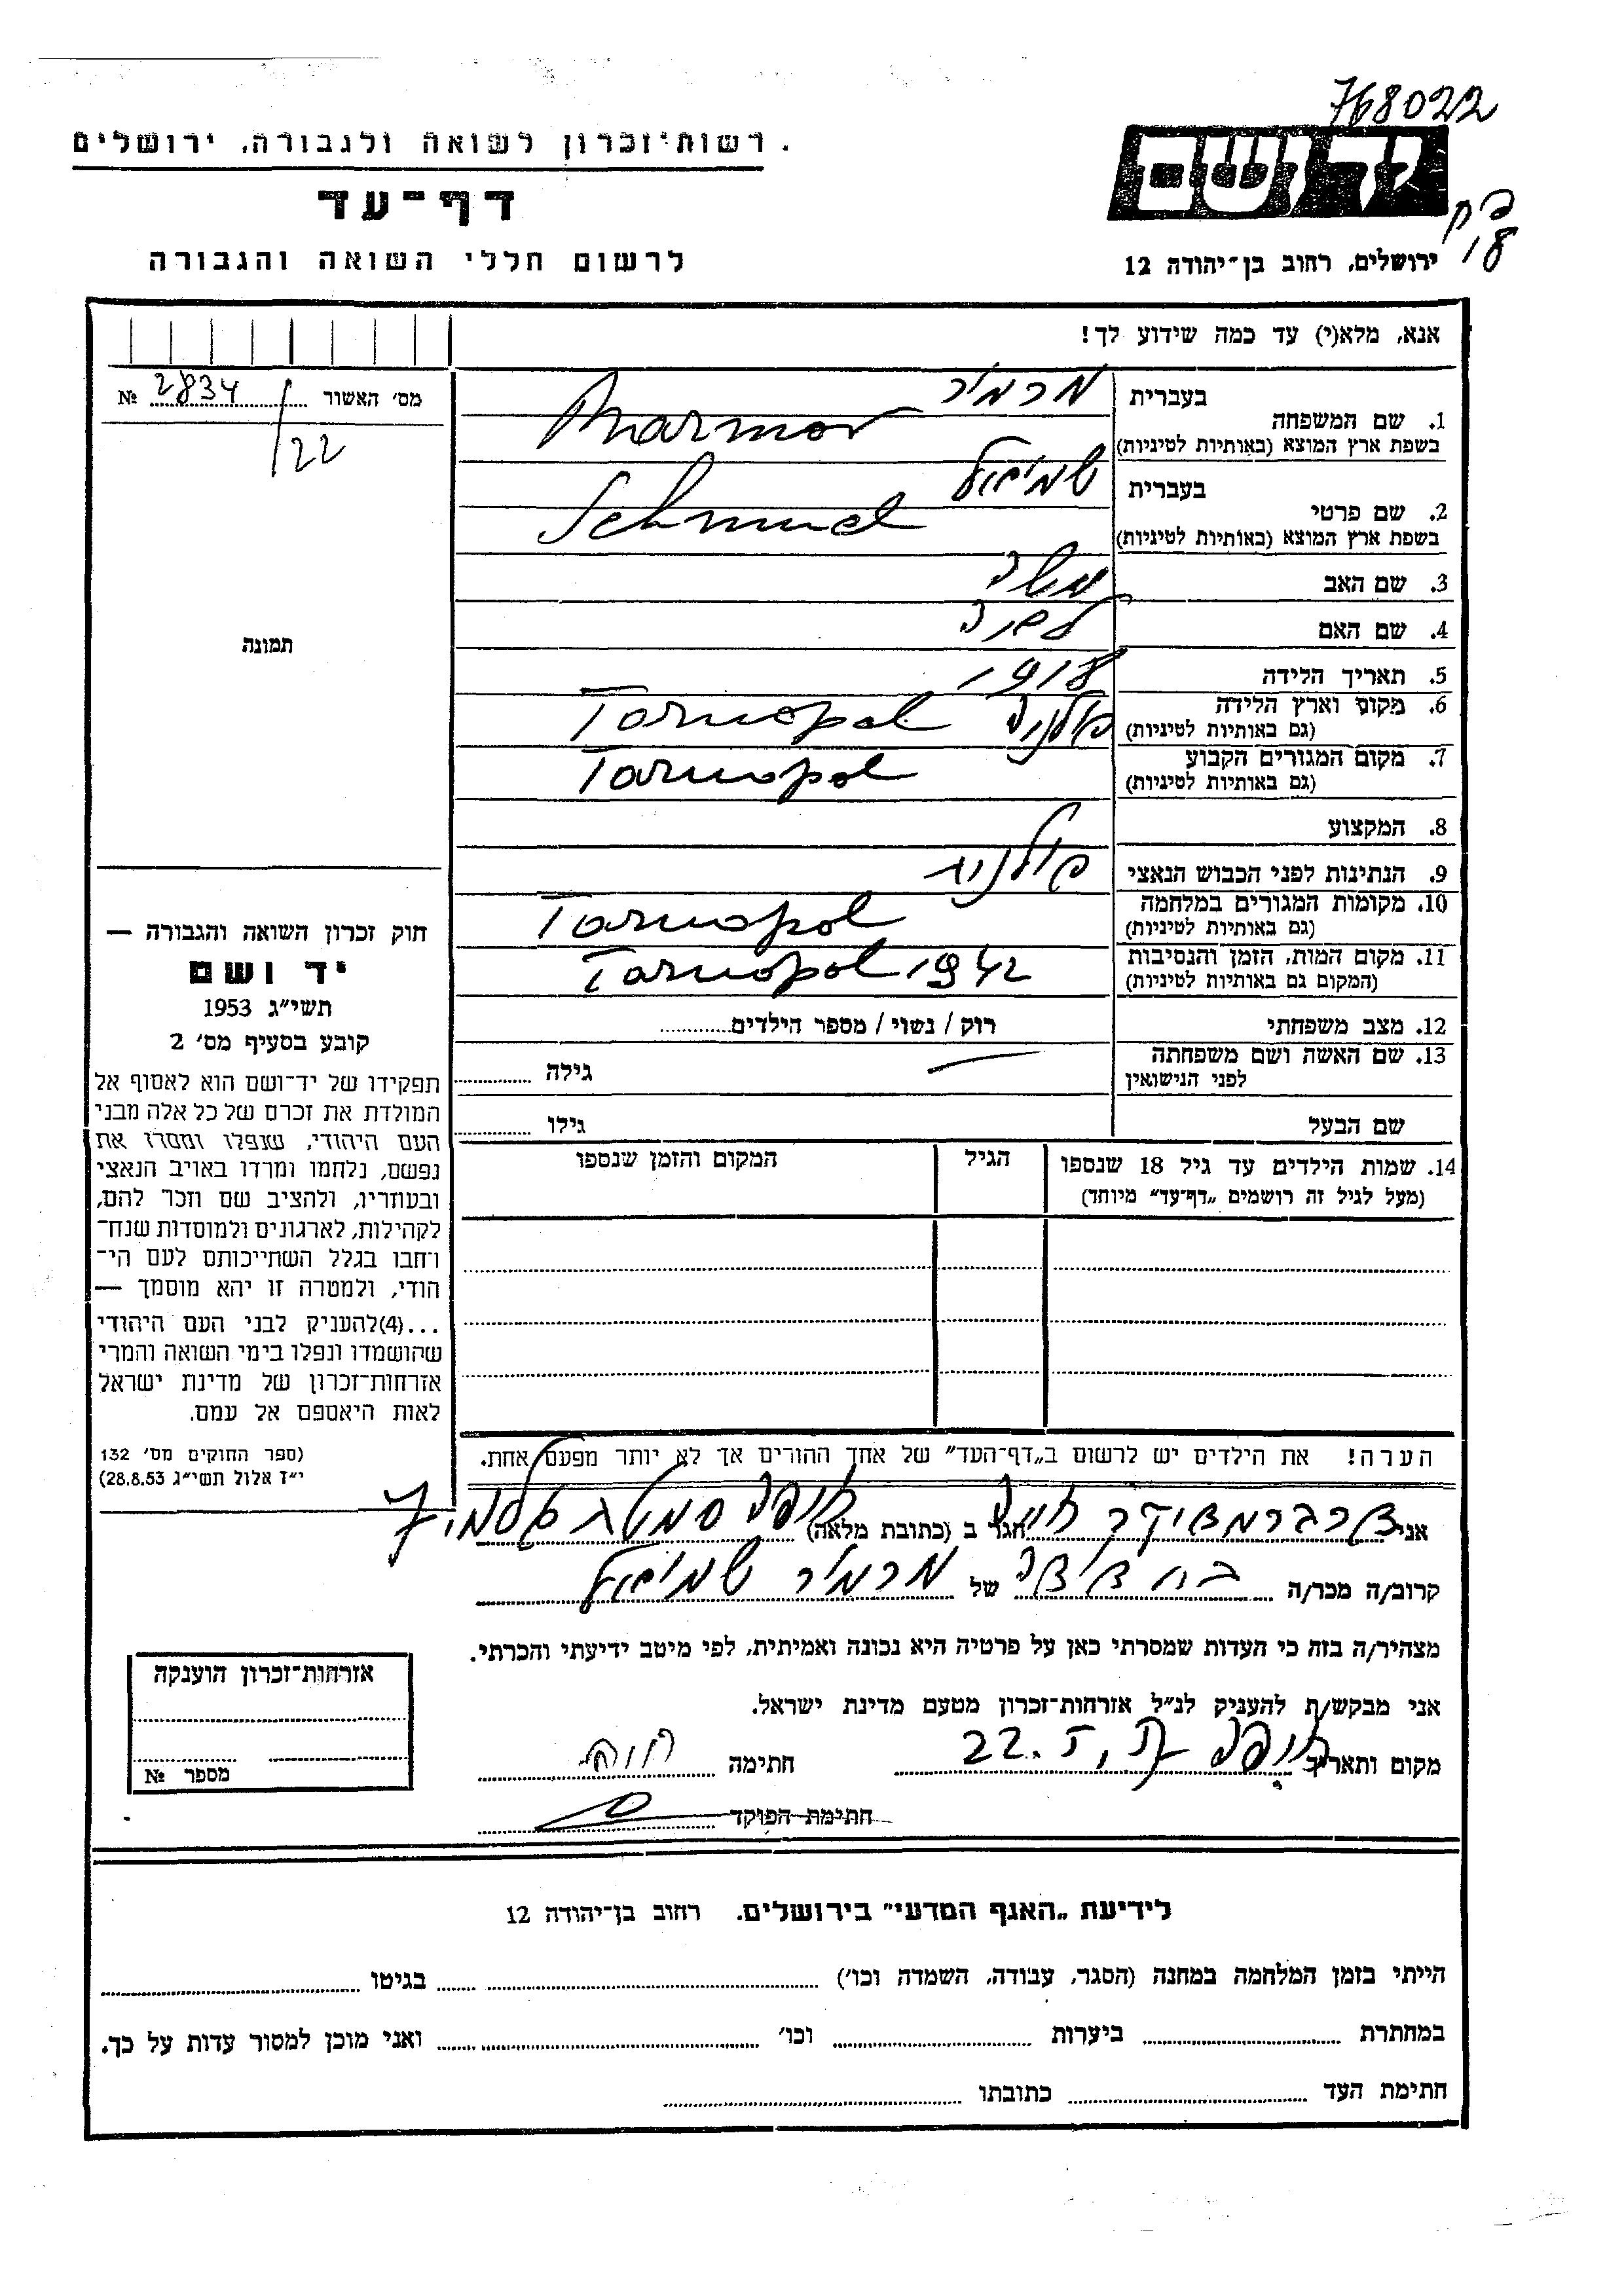 768022
רשות־זכרון לשואה ולגבורה, ירושלים
ידושם
דף־עד
לרשום חללי השואה והגבורה
ירושלים, רחוב בן־יהודה 12
18
אנא, מלא(י) עד כמה שידוע לך!
מס׳ האשור 2834 №
22
בעברית מרמור
1. שם המשפחה
בשפת ארץ המוצא (באותיות לטיניות) Marmor
בעברית שמואל
2. שם פרטי
בשפת ארץ המוצא (באותיות לטיניות) Schmuel
3. שם האב משה
4. שם האם
5. תאריך הלידה 1918
6. מקום וארץ הלידה
(גם באותיות לטיניות) Tarnopol פולניה
7. מקום המגורים הקבוע
(גם באותיות לטיניות) Tarnopol
8. המקצוע
9. הנתינות לפני הכבוש הנאצי פולנית
10. מקומות המגורים במלחמה
(גם באותיות לטיניות) Tarnopol
11. מקום המות, הזמן והנסיבות
(המקום גם באותיות לטיניות) Tarnopol 1942
12. מצב משפחתי רוק / נשוי / מספר הילדים
13. שם האשה ושם משפחתה
לפני הנישואין
גילה
שם הבעל
גילו
14. שמות הילדים עד גיל 18 שנספו
(מעל לגיל זה רושמים „דף־עד״ מיוחד)
הגיל
המקום והזמן שנספו
תמונה
חוק זכרון השואה והגבורה —
יד ושם
תשי״ג 1953
קובע בסעיף מס׳ 2
תפקידו של יד־ושם הוא לאסוף אל
המולדת את זכרם של כל אלה מבני
העם היהודי, שנפלו ומסרו את
נפשם, נלחמו ומרדו באויב הנאצי
ובעוזריו, ולהציב שם וזכר להם,
לקהילות, לארגונים ולמוסדות שנח־
רחבו בגלל השתייכותם לעם הי־
הודי, ולמטרה זו יהא מוסמך —
...(4)להעניק לבני העם היהודי
שהושמדו ונפלו בימי השואה והמרי
אזרחות־זכרון של מדינת ישראל
לאות היאספם אל עמם.
(ספר החוקים מס׳ 132
י״ז אלול תשי״ג 28.8.53)
הערה! את הילדים יש לרשום ב„דף־העד״ של אחד ההורים אך לא יותר מפעם אחת.
אני חיה הגר ב (כתובת מלאה) חיפה
קרוב/ה מכר/ה בת דודה של מרמור שמואל
מצהיר/ה בזה כי העדות שמסרתי כאן על פרטיה היא נכונה ואמיתית, לפי מיטב ידיעתי והכרתי.
אני מבקש/ת להעניק לנ״ל אזרחות־זכרון מטעם מדינת ישראל.
מקום ותאריך חיפה 22.5 חתימה
חתימת הפוקד
אזרחות־זכרון הוענקה
מספר №
לידיעת „האגף המדעי״ בירושלים. רחוב בן־יהודה 12
הייתי בזמן המלחמה במחנה (הסגר, עבודה, השמדה וכו׳) בגיטו
במחתרת ביערות וכו׳ ואני מוכן למסור עדות על כך.
חתימת העד כתובתו